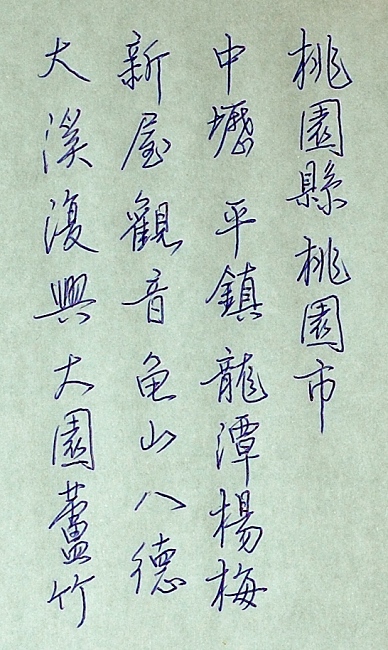 桃園縣桃園市
中壢平鎮龍潭楊梅
新屋觀音龜山八德
大溪復興大園蘆竹